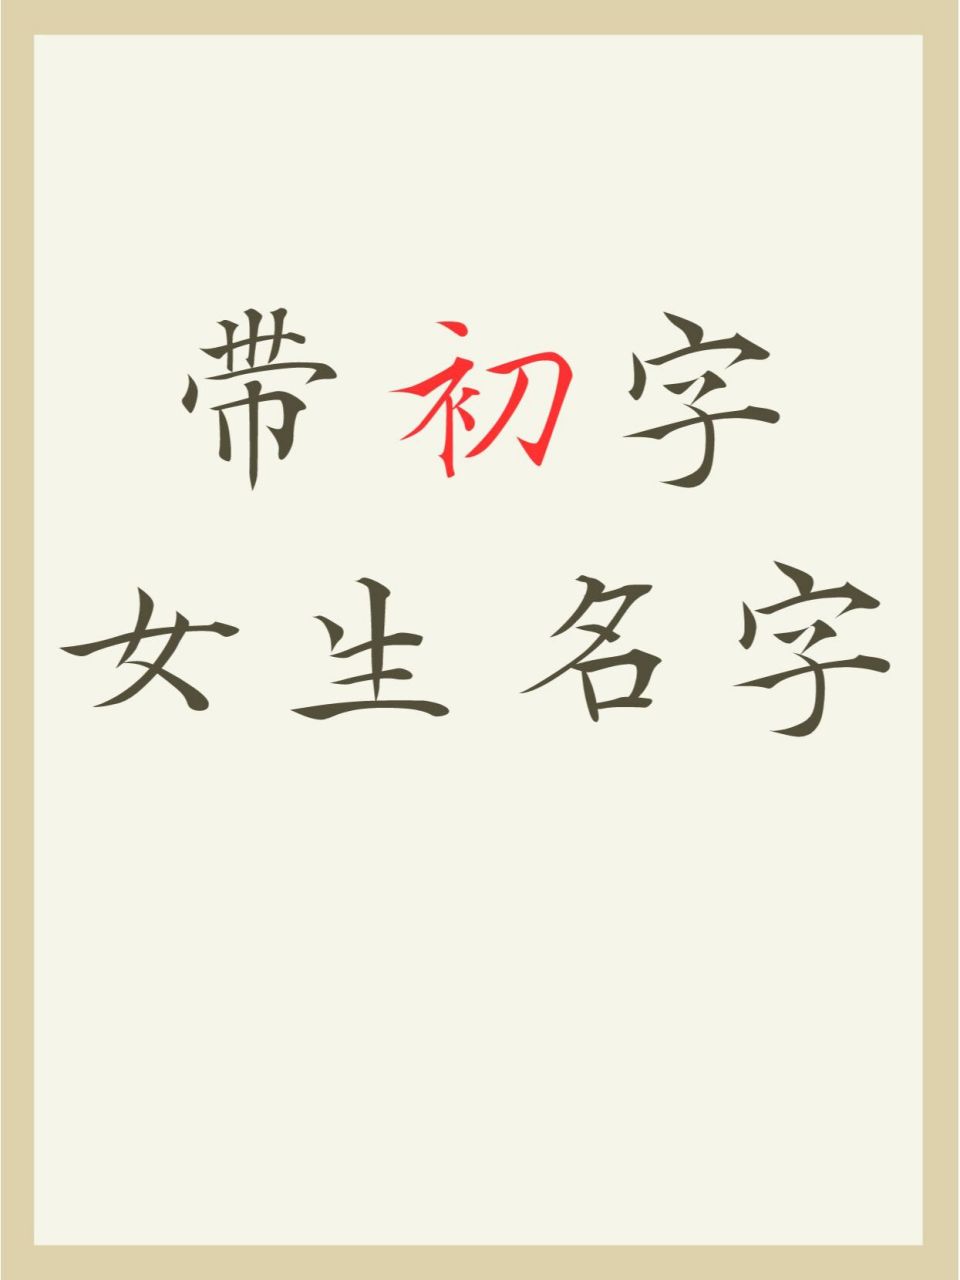 带初字
女生名字